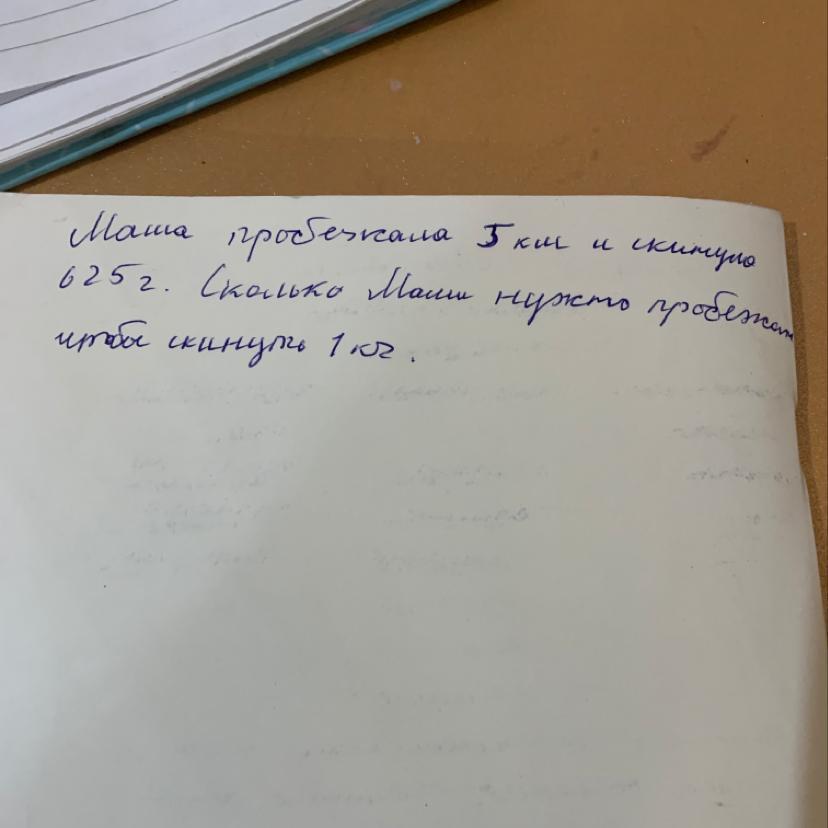 Маша пробежала 5 км и скинула
625 г. Сколько Маше нужно пробежать
чтобы скинуть 1 кг.